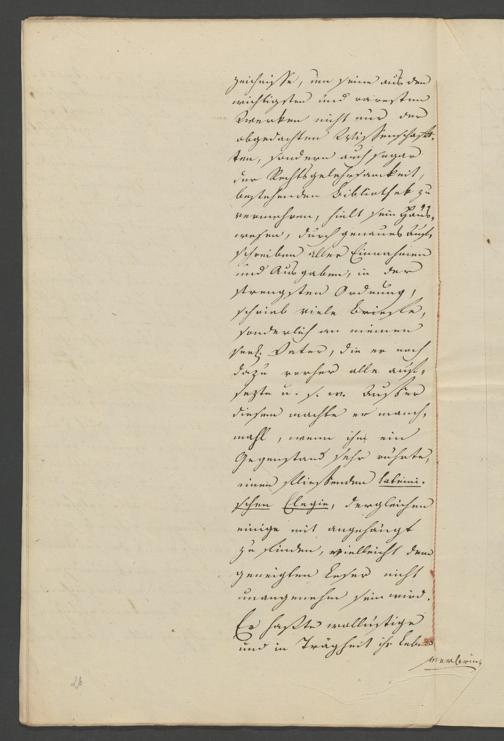 zeichnisse, um seine aus den
wichtigsten und raresten
Werken nicht nur der
obgedachten Wissenschaff-
ten, sondern auch sogar
der Rechtsgelehrsamkeit,
bestehenden Bibliothek zu
vermehren, hielt sein Haus-
wesen, durch genaues Auf-
schreiben aller Einnahmen
und Ausgaben, in der
strengsten Ordnung,
schrieb viele Brieffe,
sonderlich an meinen
seel. Vater, die er noch
dazu vorher alle auf-
sezte u. s. w. Ausser
diesem machte er manch-
mahl, wenn ihn ein
Gegenstand sehr rührte,
einen fliessenden lateini-
schen Elegie, dergleichen
einige mit angehängt
zu finden, vielleicht dem
geneigten Leser nicht
unangenehm sein wird.
Er haßte wollüstige
und in Trägheit ihr Leben
26